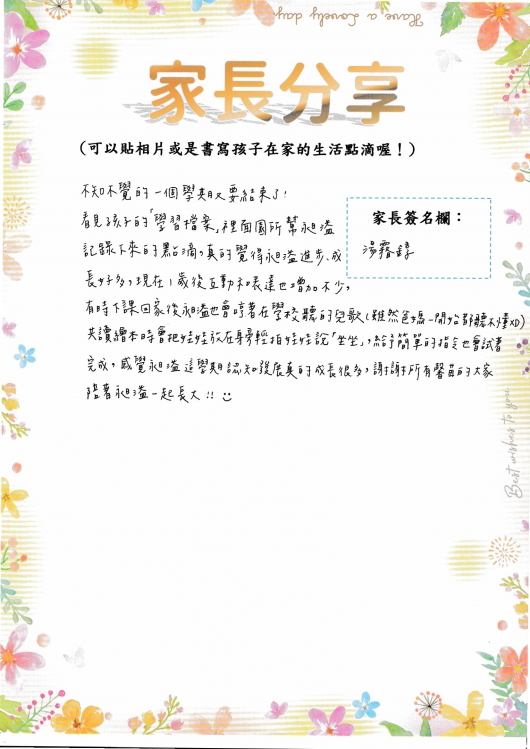 Have a Lovely day
家長分享
(可以貼相片或是書寫孩子在家的生活點滴喔！)
不知不覺的一個學期又要結束了!
看見孩子的「學習檔案」裡面園所幫昶溢
記錄下來的點滴，真的覺得昶溢進步、成
長好多，現在1歲後互動和表達也增加不少，
有時下課回家後昶溢也會哼著在學校聽的兒歌(雖然爸媽一開始都聽不懂XD)
共讀繪本時會把娃娃放在身旁輕拍娃娃說「坐坐」，給予簡單的指令也會試著
完成，感覺昶溢這學期認知發展真的成長很多，謝謝所有馨苗的大家
陪著昶溢一起長大!! ☺
家長簽名欄：
湯霧錞
Best wishes to you